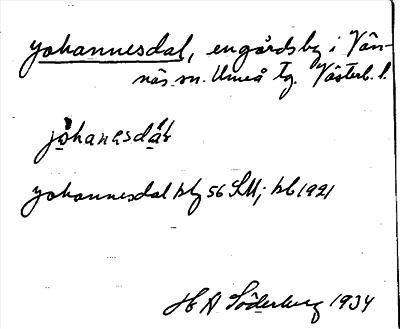 Johannesdal, engårdsby i Vän-
näs sn. Umeå tg. Västerb. l.
johanesdáɫ
Johannesdal btg 56 SM; kb 1921
H A Söderberg 1934